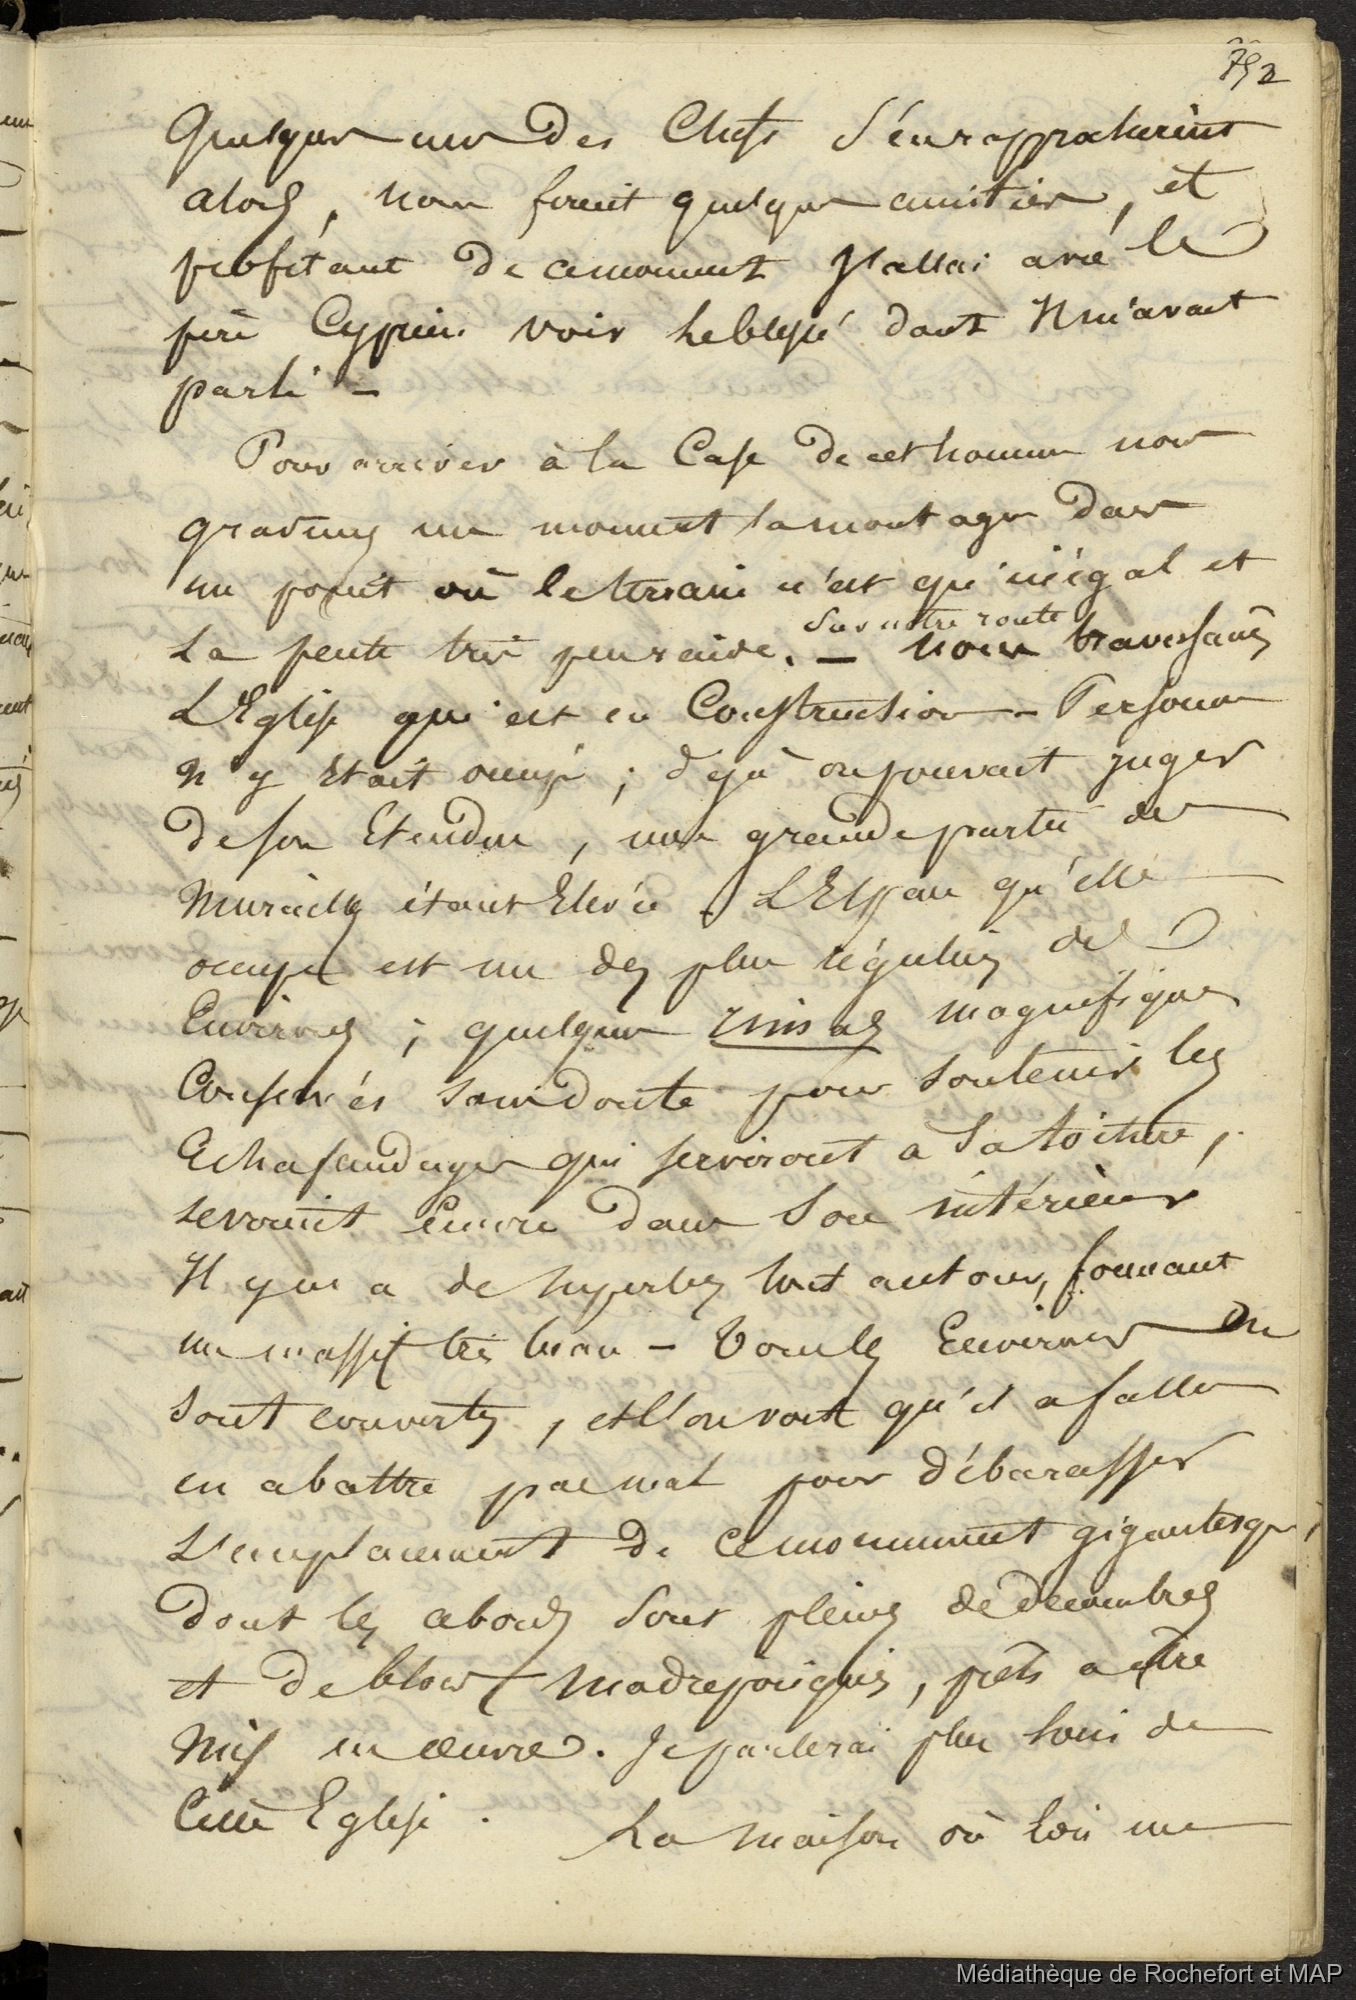 792
Quelques uns des Chefs s'en rapprochèrent
alors, nous firent quelques amitiés, et
profitant de ce moment j'allai avec le
père Cyprien voir le blessé dont il m'avait
parlé -
Pour arriver à la Case de cet homme nous
gravimes un moment la montagne dans
un point où le terrain n'est qu'inégal et
La pente très peu raide. - sur notre route nous traversâmes
L'Eglise qui est en Construction - Personne
n'y était occupé ; déjà on pouvait juger
de son Etendue, une grande partie des
murailles étant Elevée. L'Espace qu'elle
occupe est un des plus réguliers des
Environs ; quelques magnifiques
Conservés sans doute pour soutenir les
Echafaudages qui serviront à sa toiture,
se voient encore dans son intérieur
Il y en a de superbes tout autour, formant
un massif très beau - Tous les Environs en
sont couverts, et l'on voit qu'il a fallu
en abattre pas mal pour débarasser
L'emplacement de ce monument gigantesque,
dont les abords sont pleins de décombres
et de blocs madréporiques, prêts a être
mis en œuvre. Je parlerai plus loin de
Cette Eglise. La maison où l'on me
Médiathèque de Rochefort et MAP